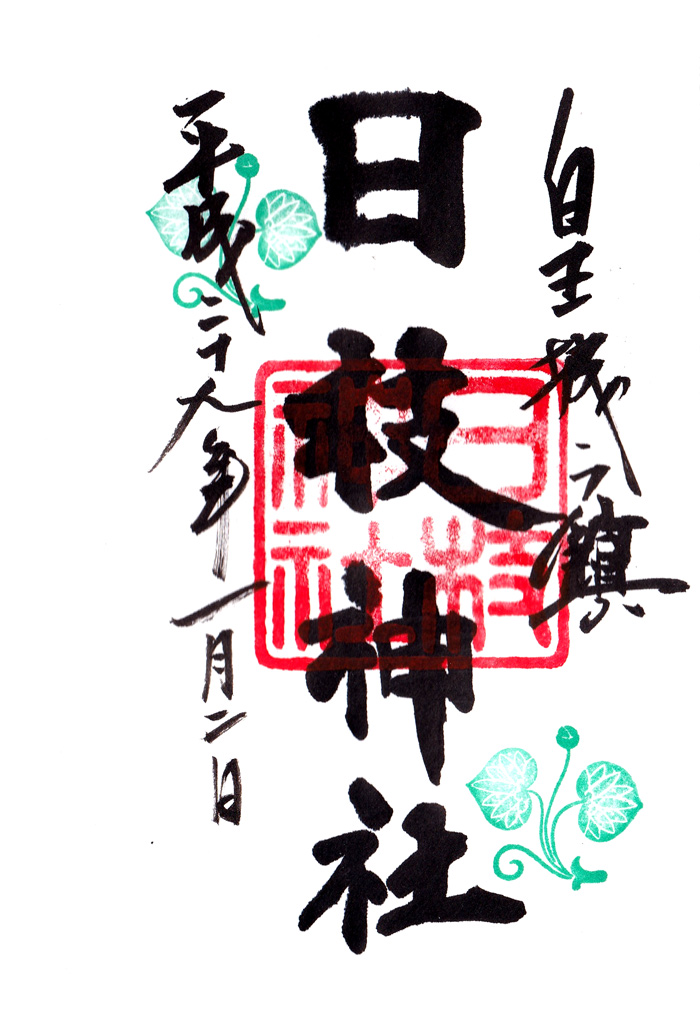 皇城之鎮
日枝神社
日枝神社
平成二十九年一月二日